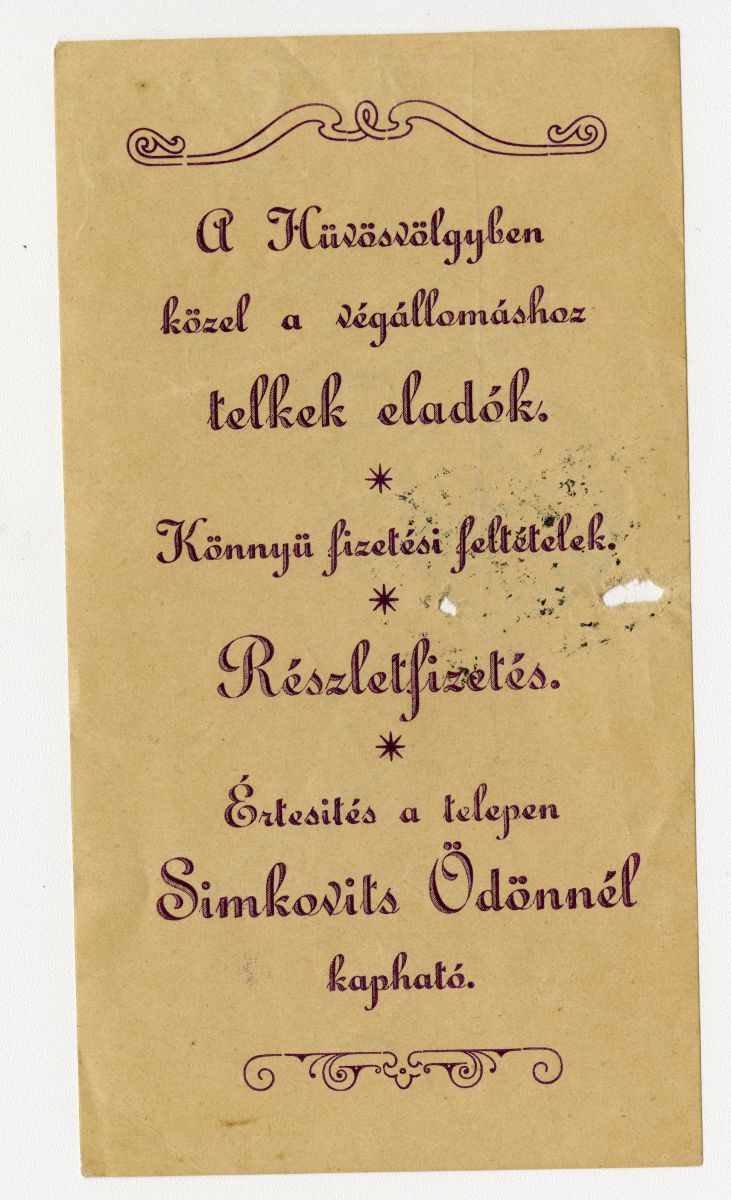 A Hüvösvölgyben
közel a végállomáshoz
telkek eladók.
Könnyü fizetési feltételek.
Részletfizetés.
Értesités a telepen
Simkovits Ödönnél
kapható.